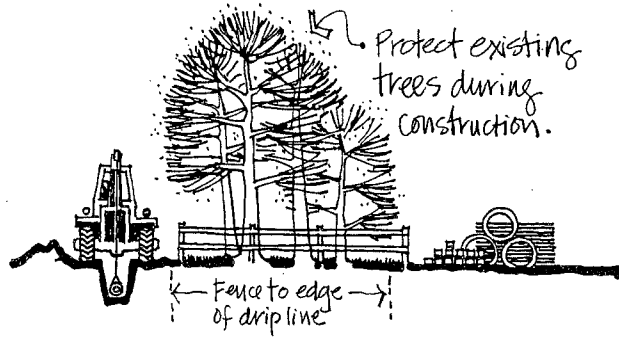 Protect existing
trees during
construction.
Fence to edge
of drip line